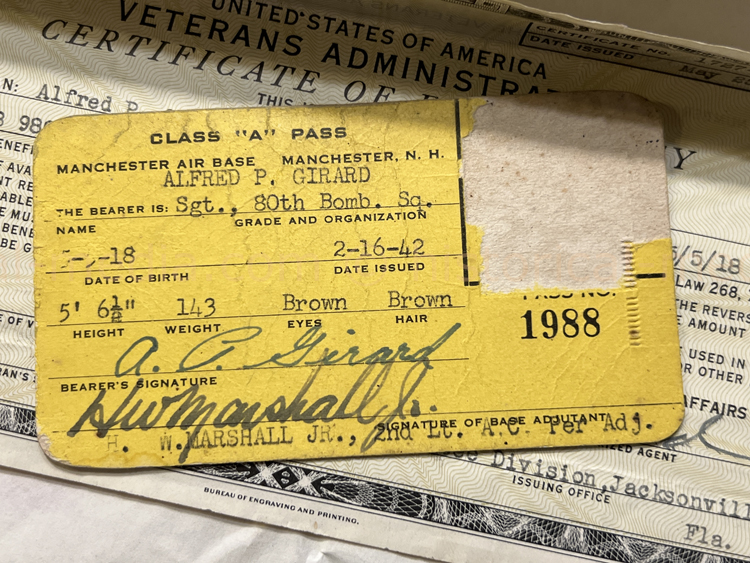 UNITED STATES OF AMERICA
VETERANS ADMINISTRAT
CERTIFICATE OF
CERTIFICATE NO.
DATE ISSUED May
THIS
N: Alfred P.
CLASS "A" PASS
MANCHESTER AIR BASE MANCHESTER, N. H.
ALFRED P. GIRARD
THE BEARER IS: Sgt., 80th Bomb. Sq.
NAME GRADE AND ORGANIZATION
-18 2-16-42
DATE OF BIRTH DATE ISSUED
5' 6½" 143 Brown Brown
HEIGHT WEIGHT EYES HAIR
PASS NO.
1988
A. P. Girard
BEARER'S SIGNATURE
H W Marshall Jr.
SIGNATURE OF BASE ADJUTANT
H. W.MARSHALL JR., 2nd Lt. A.C. Per Adj.
5/5/18
LAW 268,
THE REVERS
AMOUNT
USED IN
OR OTHER
AFFAIRS
AGENT
Division,Jacksonvill
ISSUING OFFICE
Fla.
BUREAU OF ENGRAVING AND PRINTING.